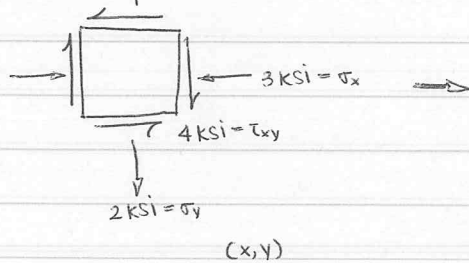 3 ksi = σx
4 ksi = τxy
2 ksi = σy
(x,y)